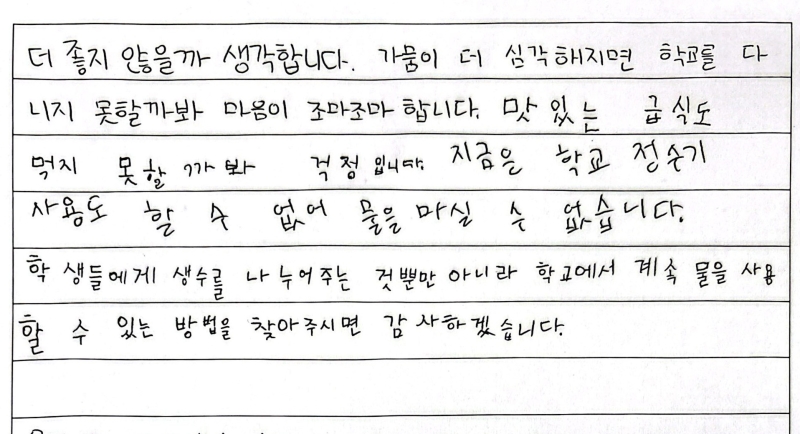 더 좋지 않을까 생각합니다. 가뭄이 더 심각해지면 학교를 다
니지 못할까봐 마음이 조마조마 합니다. 맛있는 급식도
먹지 못할까봐 걱정입니다. 지금은 학교 정수기
사용도 할 수 없어 물을 마실 수 없습니다.
학생들에게 생수를 나누어주는 것뿐만 아니라 학교에서 계속 물을 사용
할 수 있는 방법을 찾아주시면 감사하겠습니다.